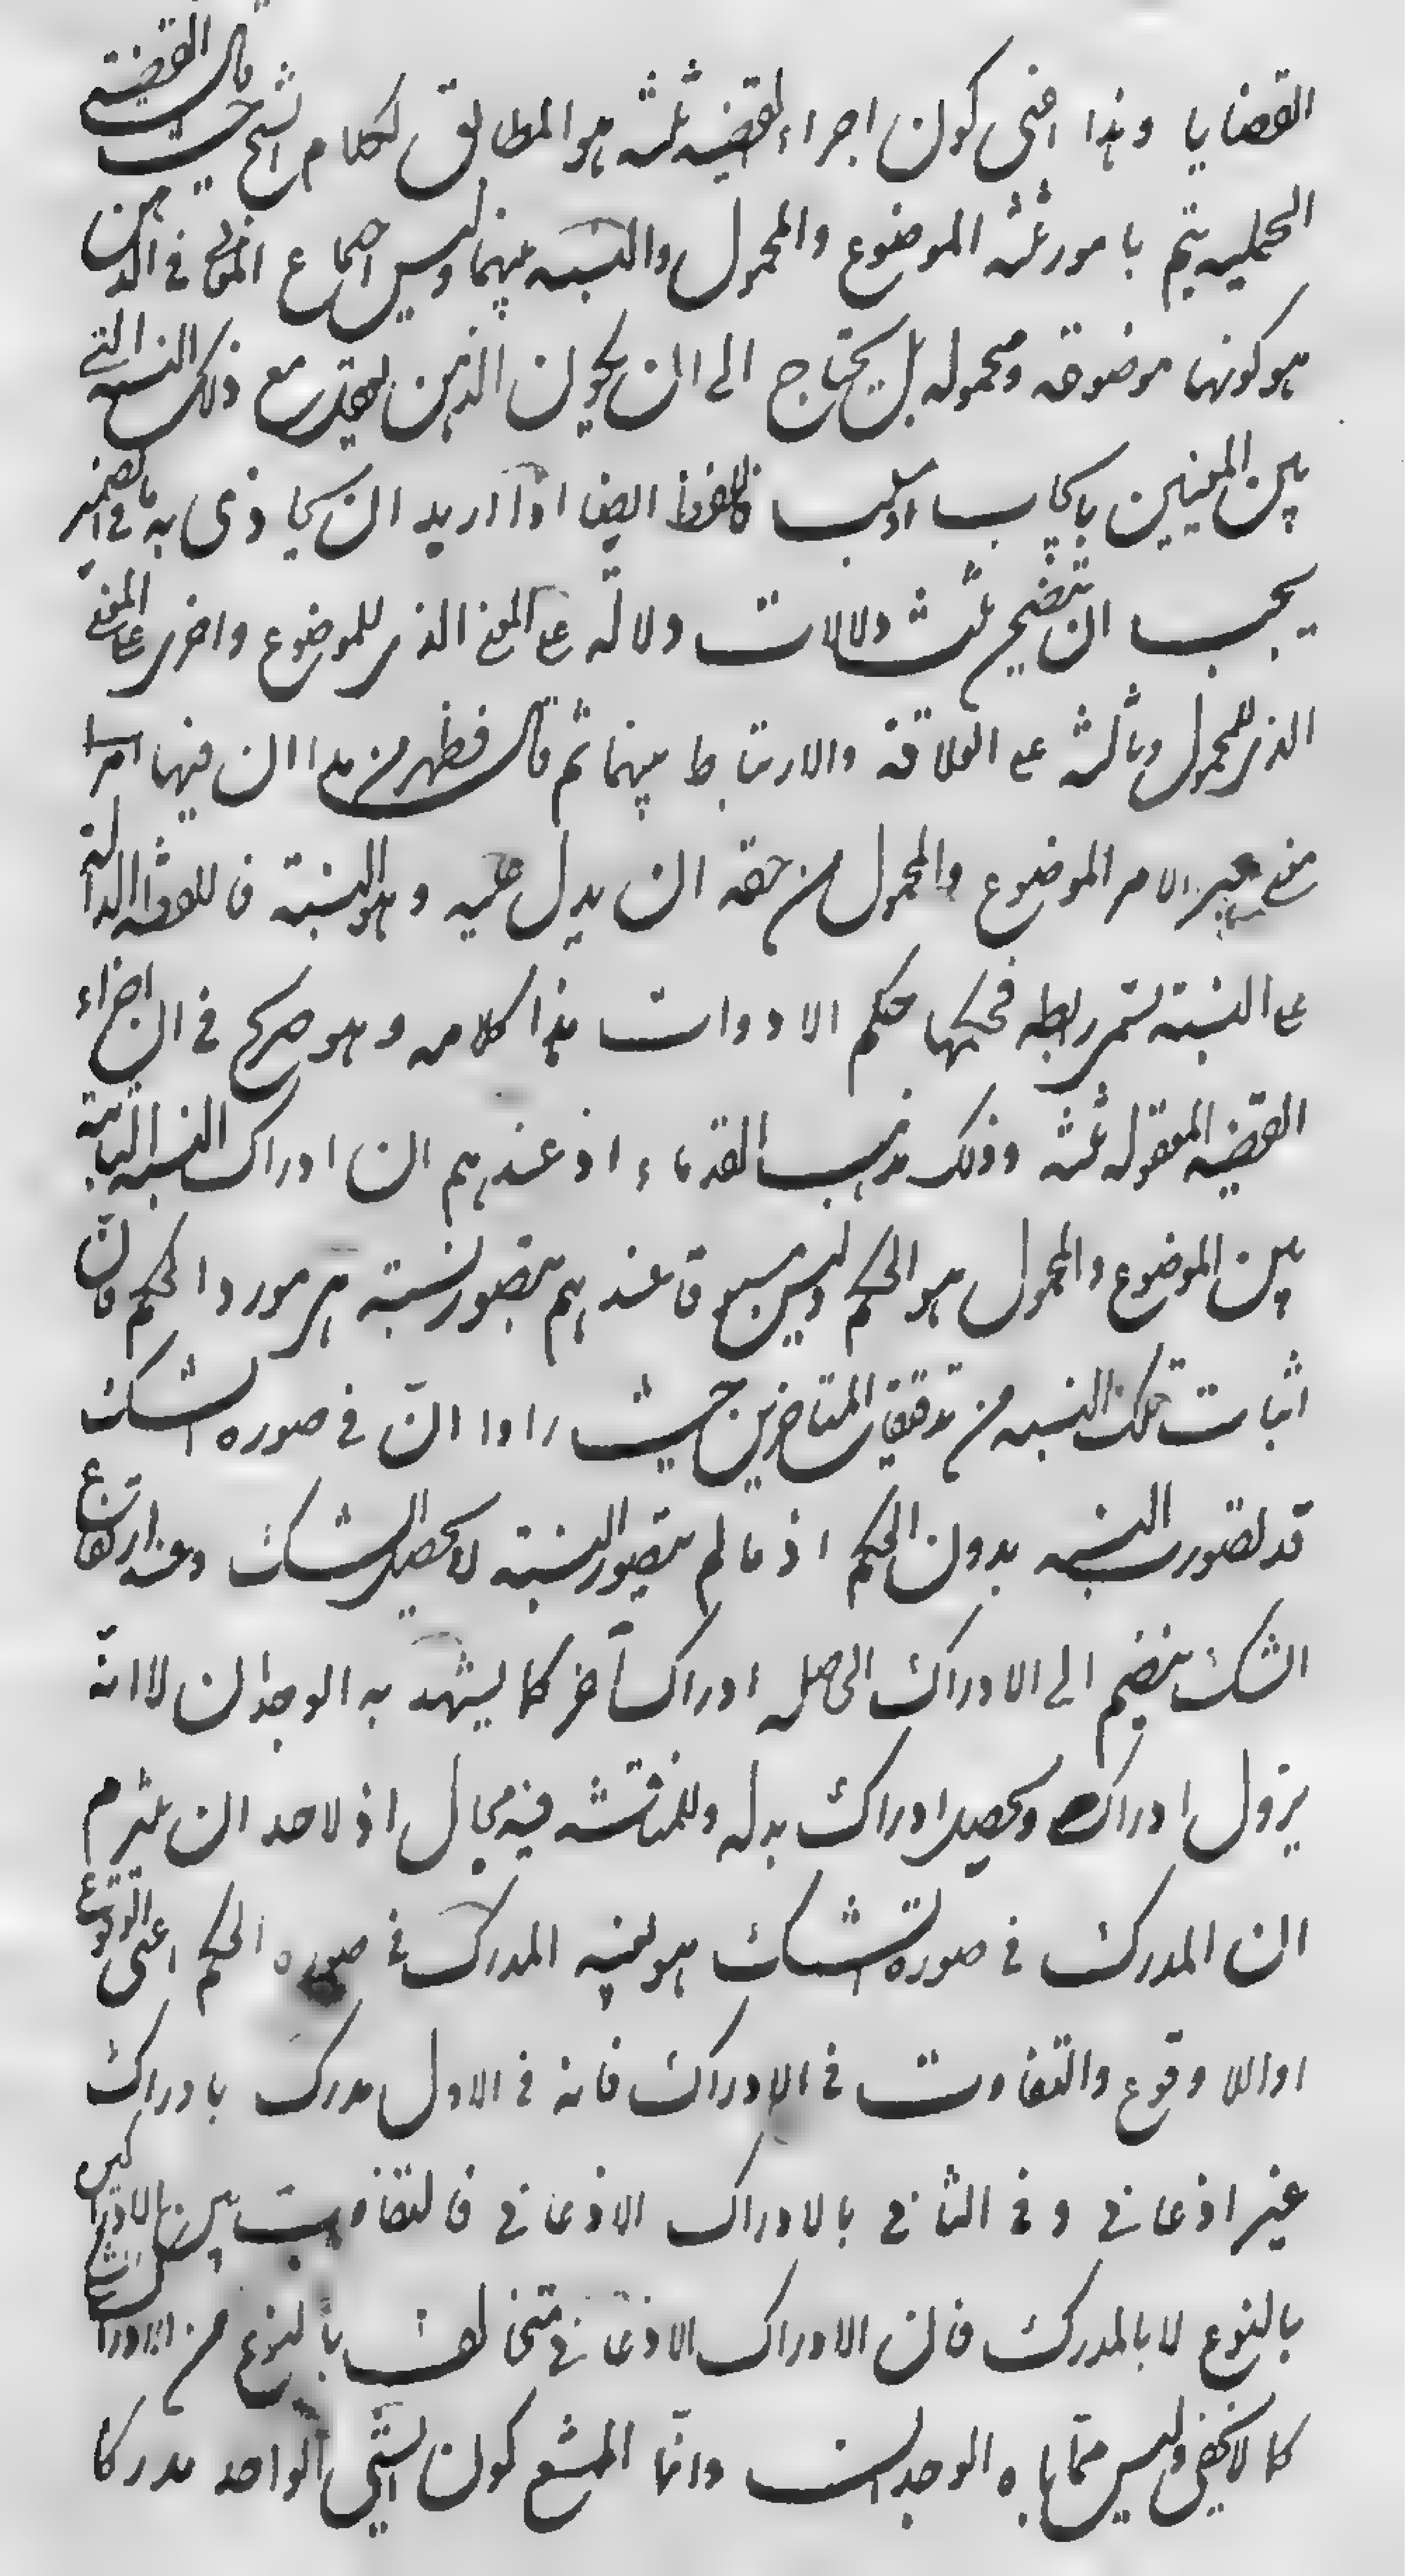 القضايا وهذا اعنى كون اجزاء القضيه ثلثه هو المطابق لكلام الشيخ حيث قال القضية
الحمليه يتم بامور ثلثه الموضوع والمحمول والنسبه بينهما وليس اجتماع المعانى فى الذهن
هو كونها موضوعه ومحموله بل يحتاج الى ان يكون الذهن يعقد مع ذلك النسبه التى
بين المعنيين بايجاب او سلب فاللفظ ايضا اذا اريد ان يحاذى به ما فى الضمير
يجب ان يتضمن ثلث دلالات دلاله على المعنى الذى للموضوع واخرى على المعنى
الذى للمحمول وثالثه على العلاقة والارتباط بينهما ثم قال فظهر من هذا ان فيها امرا
معنى غير الامر الموضوع والمحمول من حقه ان يدل عليه وهو النسبة فاللفظه الدالة
على النسبة تسمى رابطه فحكمها حكم الادوات هذا كلامه وهو صريح فى ان اجزاء
القضيه المعقوله ثلثه وذلك مذهب القدماء اذ عندهم ان ادراك النسبه الثابتة
بين الموضوع والمحمول هو الحكم وليس مسبوقا عندهم بتصور نسبة هى مورد الحكم فان
اثبات تلك النسبه من تدقيقات المتاخرين حيث راوا انّ فى صوره الشك
قد تصورت النسبه بدون الحكم اذ ما لم يتصور النسبة لا يحصل الشك وعند ارتفاع
الشك ينضم الى الادراك الحاصل ادراك آخر كما يشهد به الوجدان لا انّه
يزول ادراك ويحصل ادراك بدله وللمناقشه فيه مجال اذ لاحد ان يلتزم
ان المدرك فى صوره الشك هو بعينه المدرك فى صوره الحكم اعنى الوقوع
او اللا وقوع والتفاوت فى الادراك فانه فى الاول مدرك بادراك
غير اذعانى وفى الثانى بالادراك الاذعانى فالتفاوت بين الادراكين
بالنوع لا بالمدرك فان الادراك الاذعانى متخالف بالنوع من الادراكات
كما لا يخفى وليس ممّا ياباه الوجدان وانّما الممتنع كون الشئ الواحد مدركا